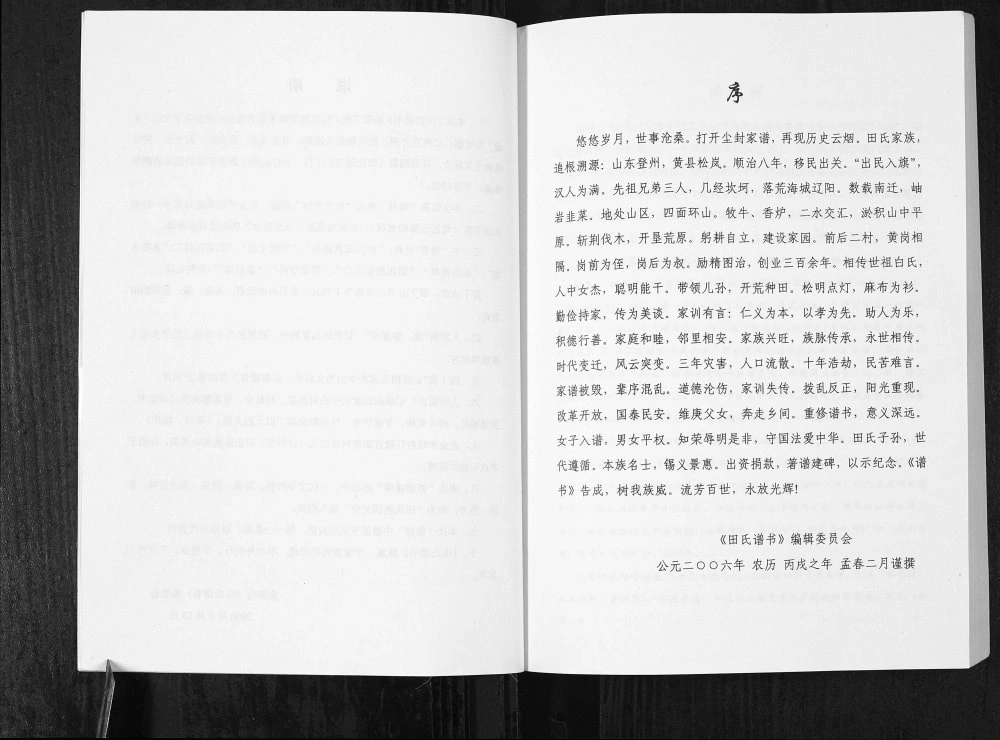 序
悠悠岁月，世事沧桑。打开尘封家谱，再现历史云烟。田氏家族，
追根溯源：山东登州，黄县松岚。顺治八年，移民出关。“出民入旗”，
汉人为满。先祖兄弟三人，几经坎坷，落荒海城辽阳。数载南迁，岫
岩韭菜。地处山区，四面环山。牧牛、香炉，二水交汇，淤积山中平
原。斩荆伐木，开垦荒原。躬耕自立，建设家园。前后二村，黄岗相
隔。岗前为侄，岗后为叔。励精图治，创业三百余年。相传世祖白氏，
人中女杰，聪明能干。带领儿孙，开荒种田。松明点灯，麻布为衫。
勤俭持家，传为美谈。家训有言：仁义为本，以孝为先。助人为乐，
积德行善。家庭和睦，邻里相安。家族兴旺，族脉传承，永世相传。
时代变迁，风云突变。三年灾害，人口流散。十年浩劫，民苦难言。
家谱被毁，辈序混乱。道德沦伤，家训失传。拨乱反正，阳光重现。
改革开放，国泰民安。维庚父女，奔走乡间。重修谱书，意义深远。
女子入谱，男女平权。知荣辱明是非，守国法爱中华。田氏子孙，世
代遵循。本族名士，锡义景惠。出资捐款，著谱建碑，以示纪念。《谱
书》告成，树我族威。流芳百世，永放光辉！
《田氏谱书》编辑委员会
公元二〇〇六年 农历 丙戌之年 孟春二月谨撰